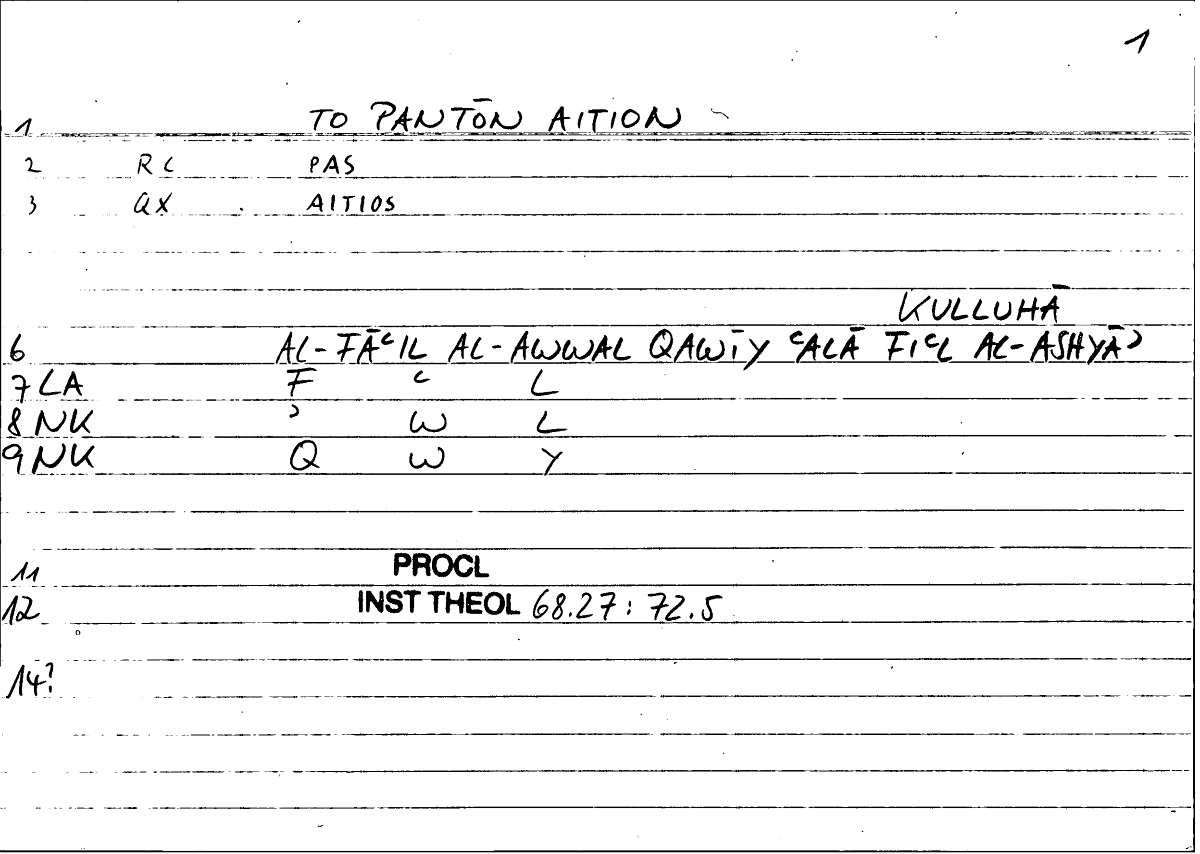 1
1 TO PANTŌN AITION
2 RC PAS
3 QX AITIOS
KULLUHĀ
6 AL-FĀʿIL AL-AWWAL QAWĪY ʿALĀ FIʿL AL-ASHYĀʾ
7 LA F ʿ L
8 NK ʾ W L
9 NK Q W Y
11 PROCL
12 INST THEOL 68.27: 72.5
14?